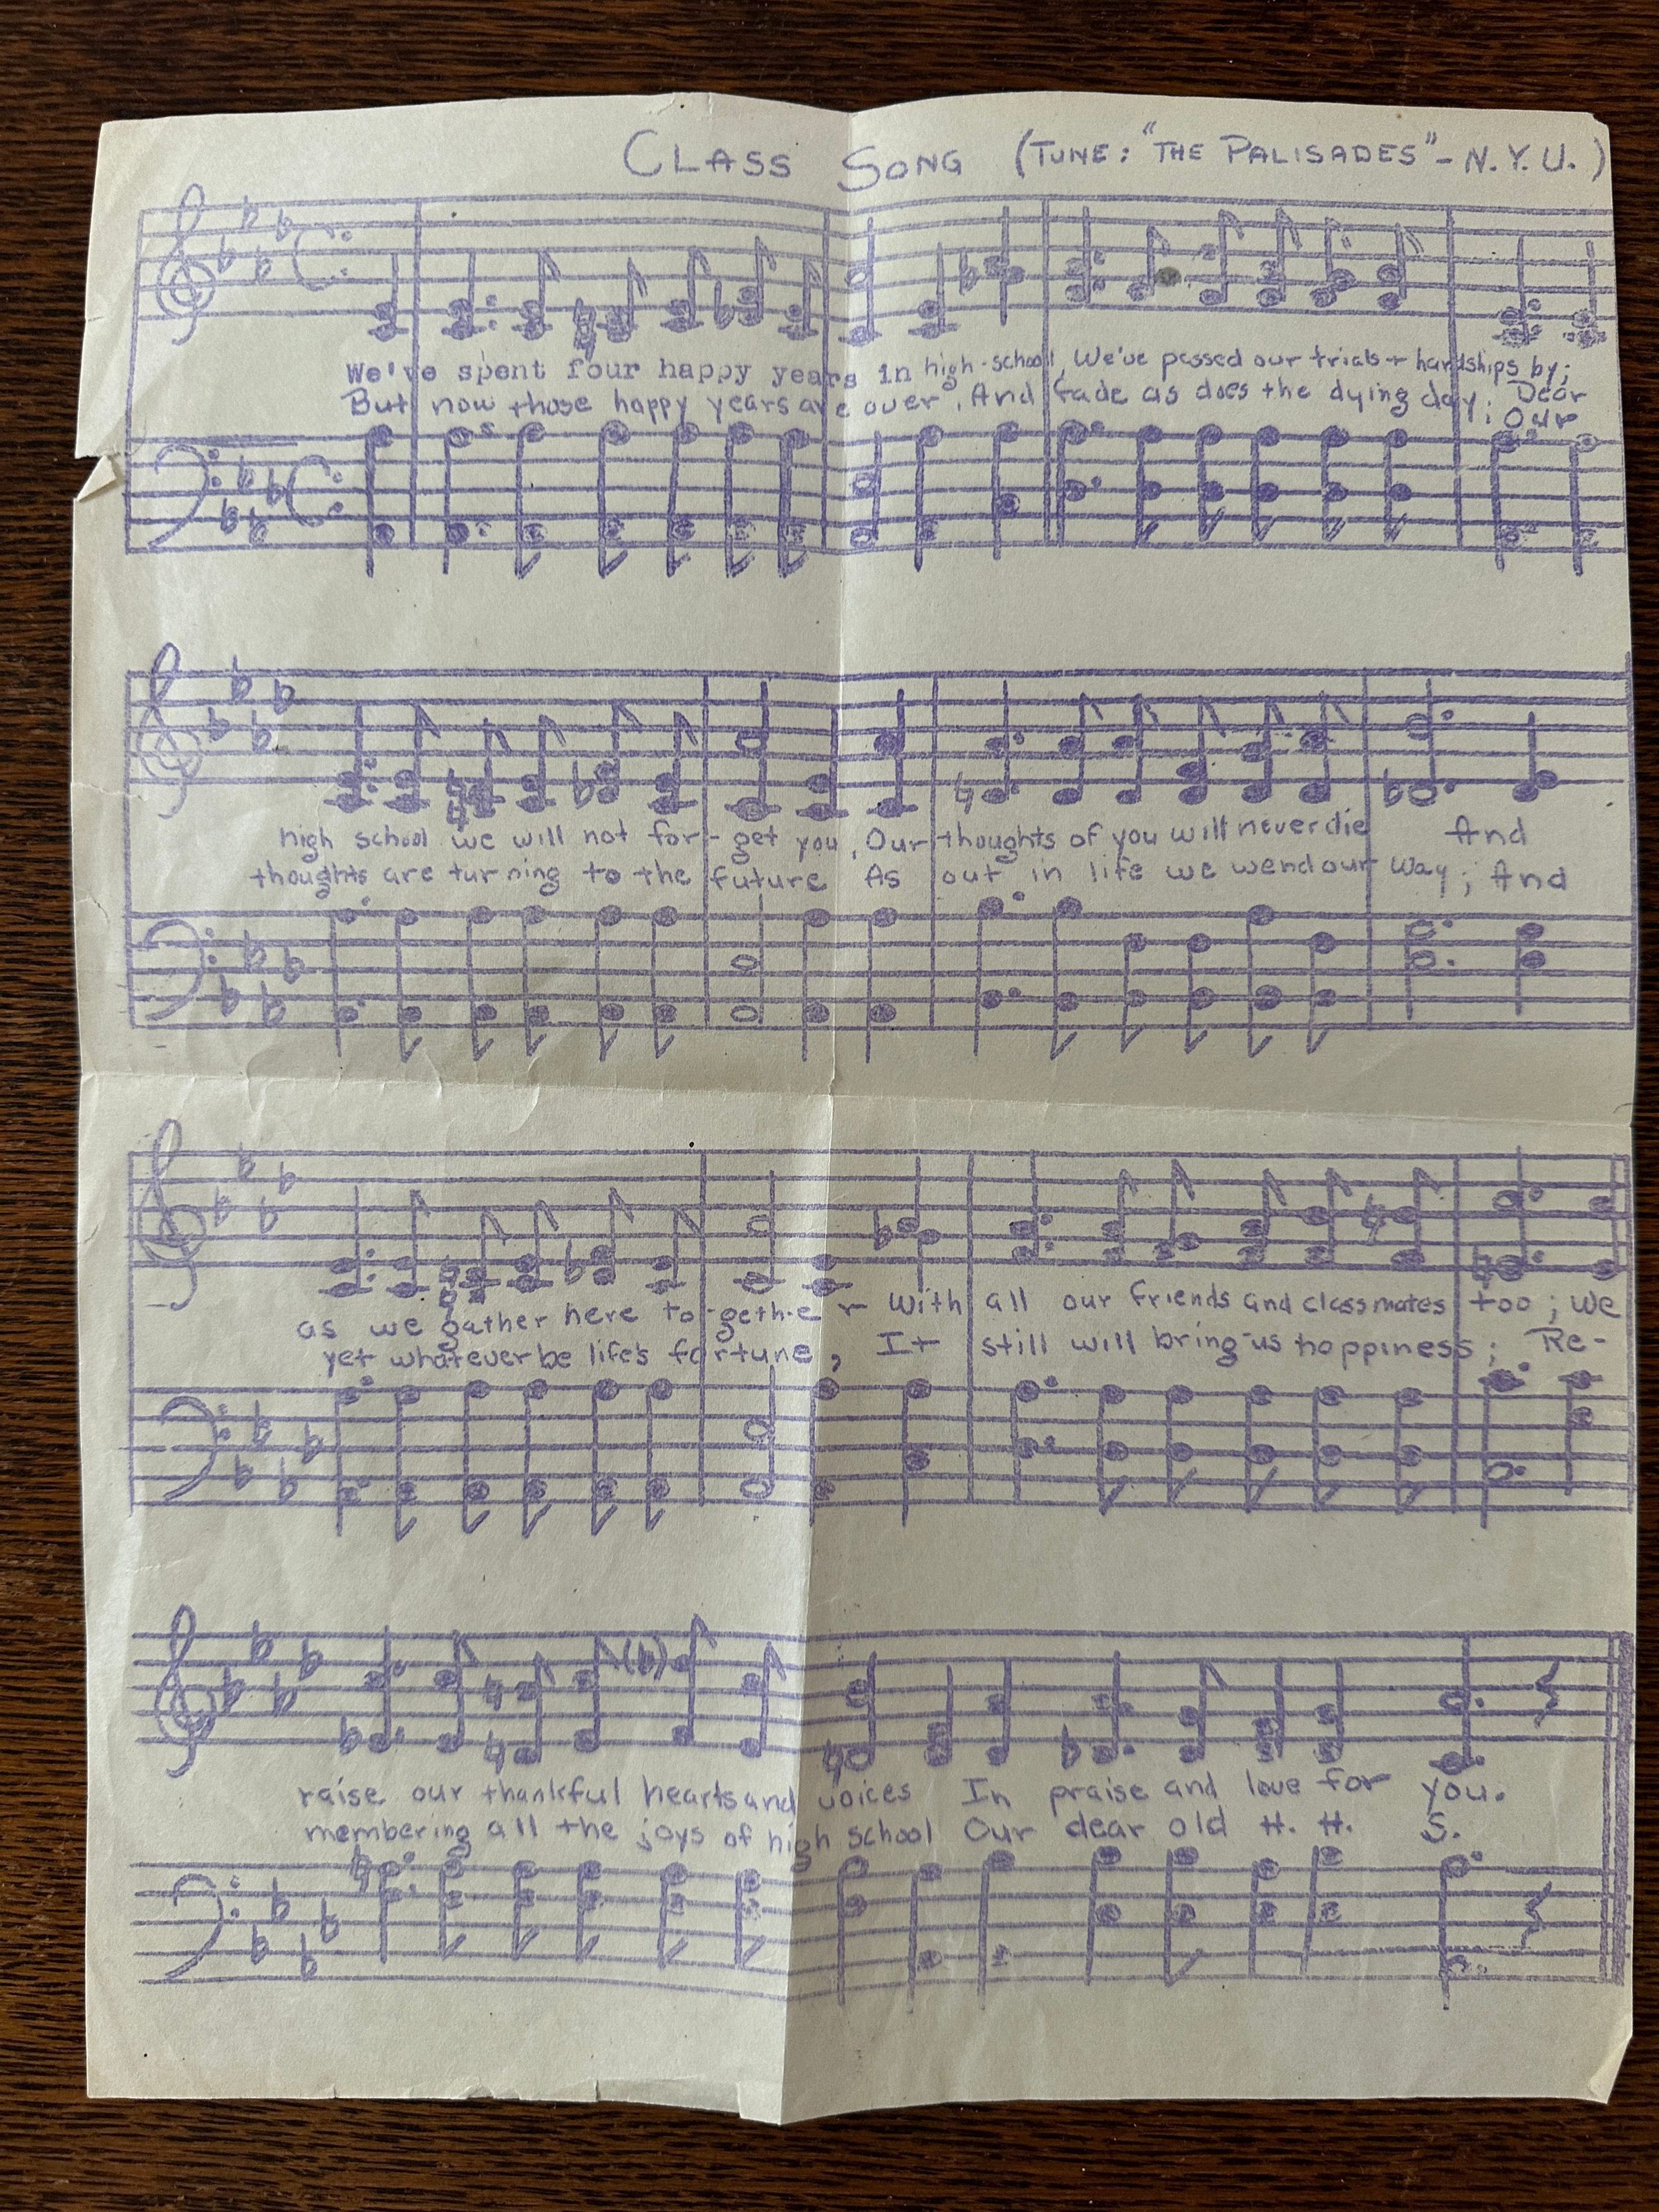 CLASS SONG (TUNE: "THE PALISADES" - N.Y.U.)
We've spent four happy years in high-school, We've passed our trials + hardships by; Dear
But now those happy years are over, And fade as does the dying day; Our
high school we will not for-get you, Our thoughts of you will never die And
thoughts are turning to the future As out in life we wend our way; And
as we gather here to-geth-er With all our friends and classmates too; We
yet whatever be life's fortune, It still will bring us happiness; Re-
raise our thankful hearts and voices In praise and love for you.
membering all the joys of high school Our dear old H. H. S.